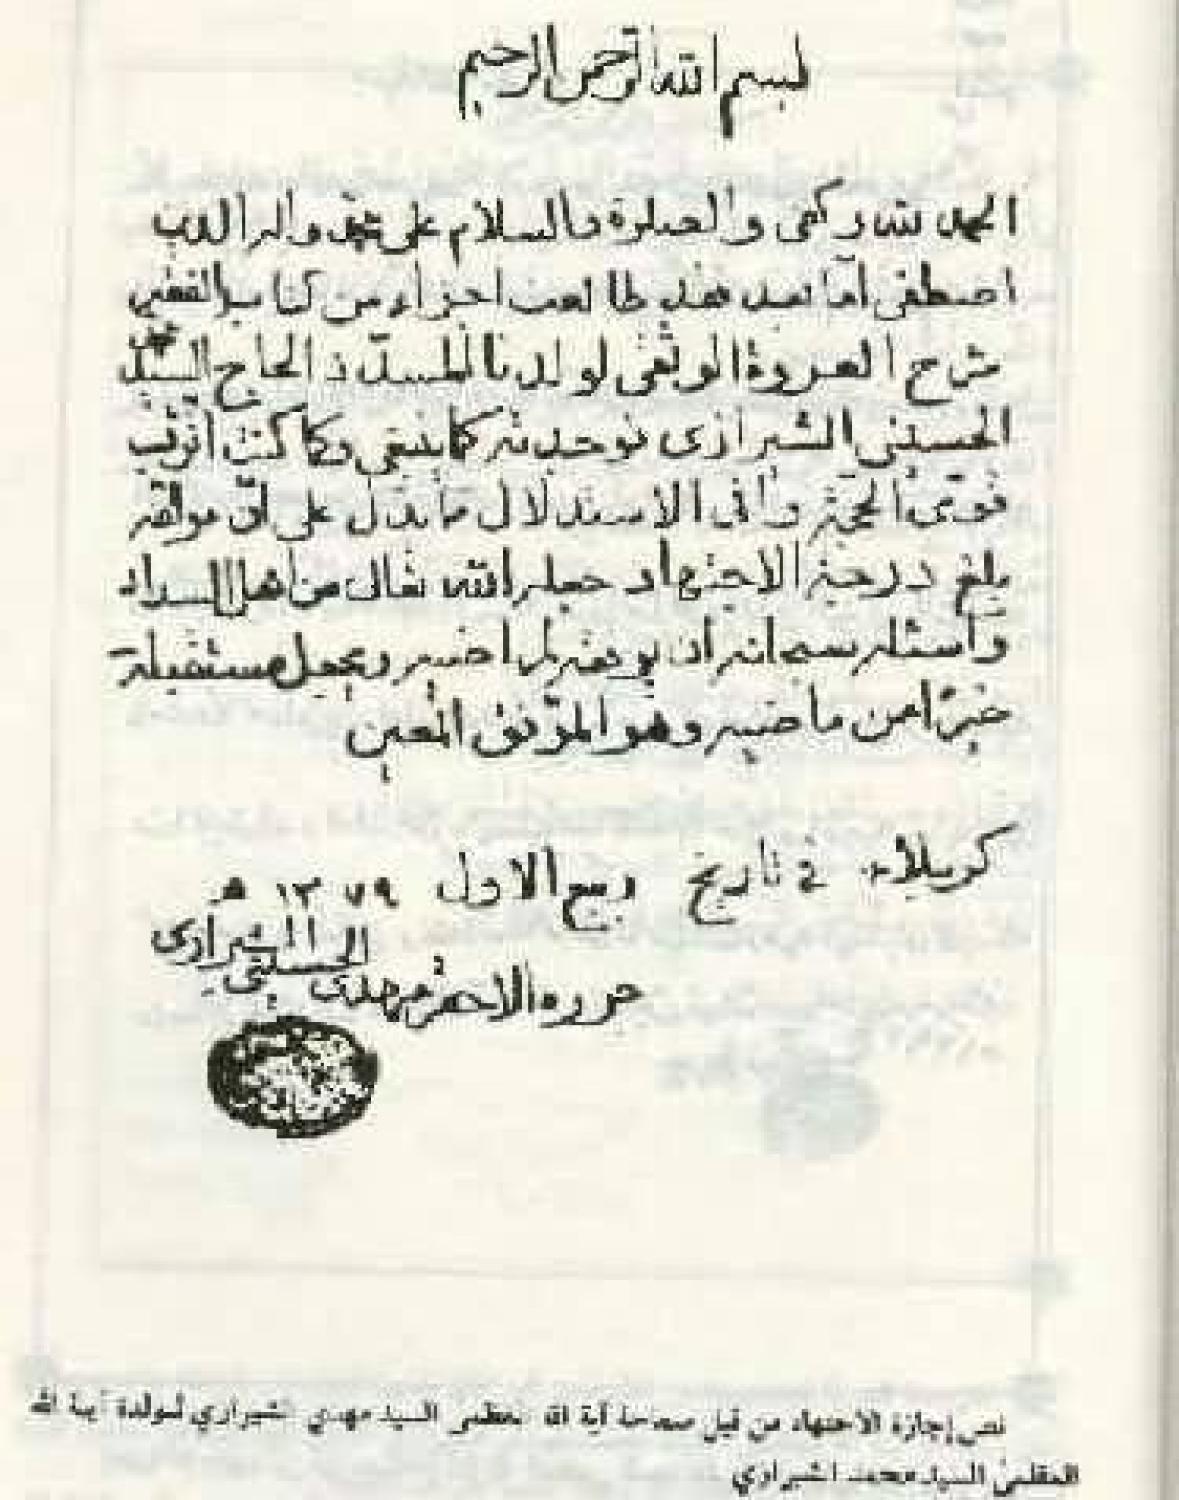 بسم الله الرحمن الرحيم
الحمد لله وكفى والصلوة والسلام على محمد واله الذين
اصطفى أما بعد فقد طالعت اجزاء من كتاب الفقه
شرح العروة الوثقى لولدنا المسدد الحاج السيد محمد
الحسيني الشيرازى فوجدته كما ينبغي وكما كنت أترقب
قوى الحجة وافى الاستدلال مما يدل على ان مؤلفه
بلغ درجة الاجتهاد جعله الله تعالى من اهل السداد
واسئله سبحانه ان يوفقه لمراضيه ويجعل مستقبله
خيرا من ماضيه وهو الموفق المعين
كربلاء في تاريخ ربيع الاول ١٣٧٩ هـ
حرره الاحقر مهدى الحسيني الشيرازى
نص إجازة الاجتهاد من قبل سماحة آية الله العظمى السيد مهدي الشيرازي لولده آية الله
العظمى السيد محمد الشيرازي